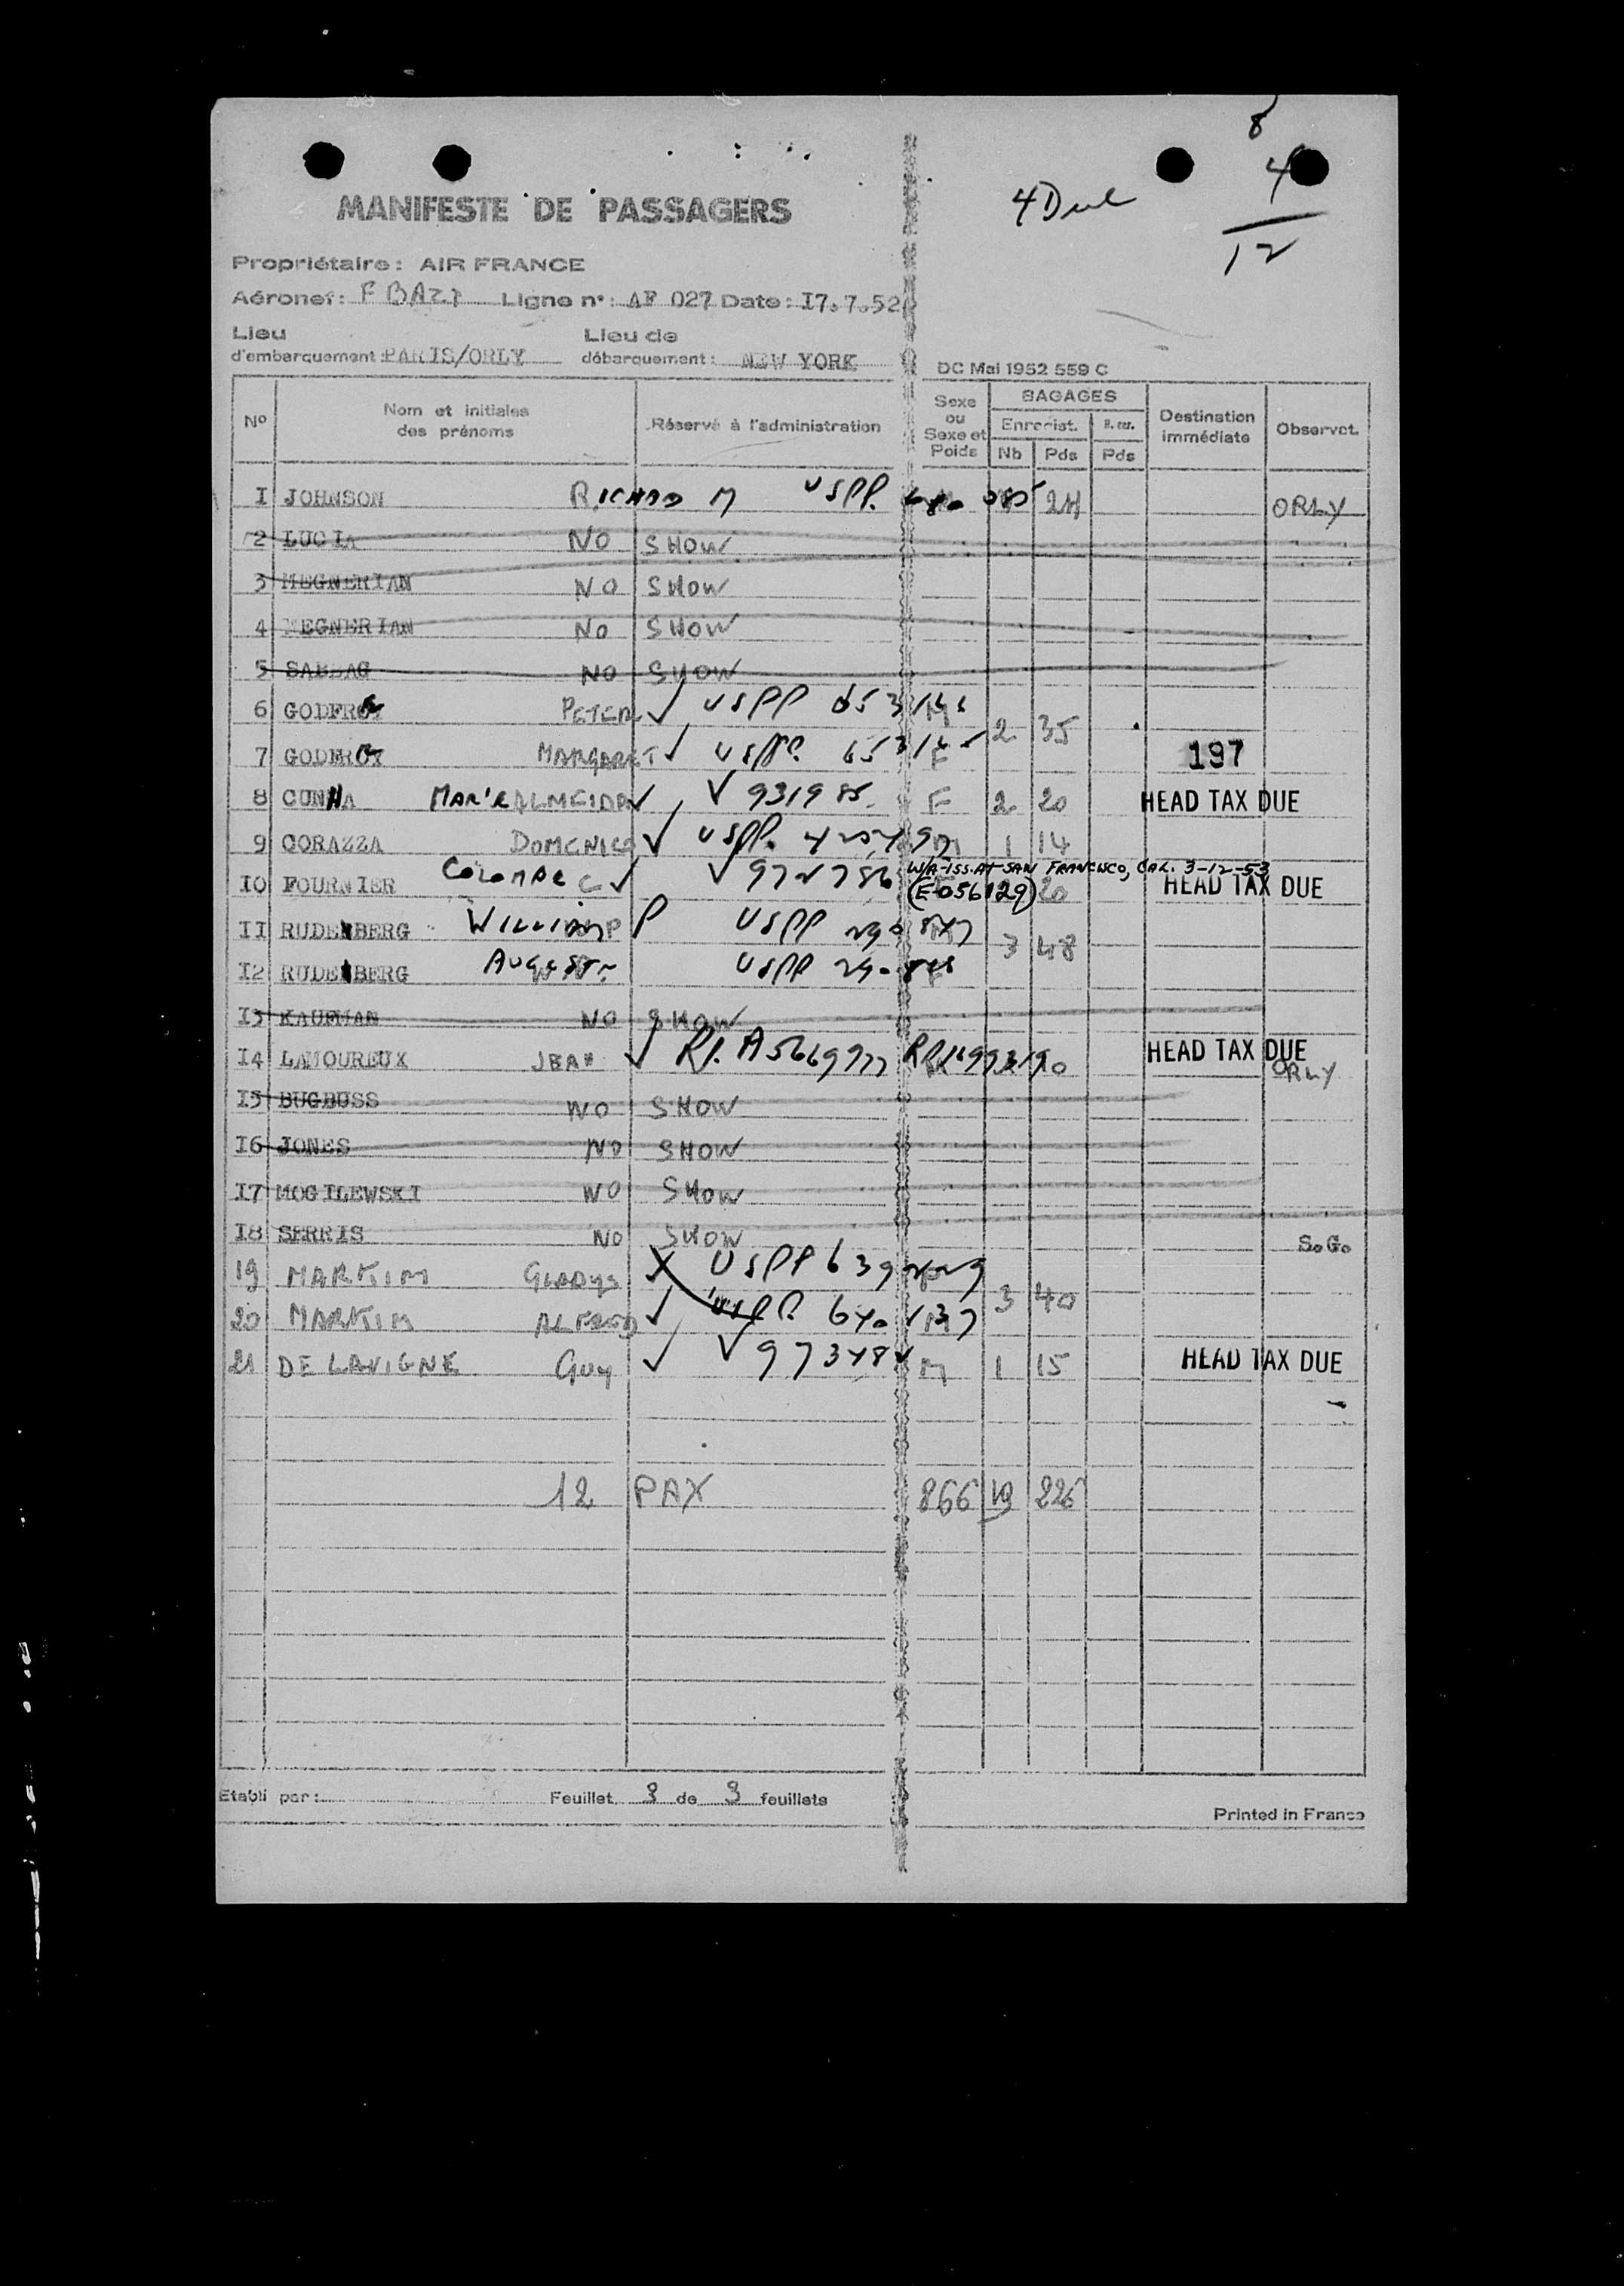 8
4
4 Due
12
MANIFESTE DE PASSAGERS
Propriétaire: AIR FRANCE
Aéronef: F BAZI Ligne n°: AF 027 Date: I7.7.52
Lieu d'embarquement: PARIS/ORLY Lieu de débarquement: NEW YORK
DC Mai 1952 559 C
N° Nom et initiales des prénoms Réservé à l'administration Sexe ou Sexe et Poids BAGAGES Enregist. Nb Pds Pds Destination immédiate Observat.
I JOHNSON RICHARD M USPP. 24 ORLY
2 LUCIA NO SHOW
3 MEGNERIAN NO SHOW
4 MEGNERIAN NO SHOW
5 SABBAG NO SHOW
6 GODFREY PETER ✓ USPP M 2 35
7 GODFREY MARGARET ✓ USPP F 197
8 CUNHA ALMEIDA ✓ V 931985 F 2 20 HEAD TAX DUE
9 CORAZZA DOMENICO ✓ USPP. M 1 14
W/A-ISS. AT SAN FRANCISCO, CAL. 3-12-53
IO FOURNIER C ✓ V 972786 (E-056129) 20 HEAD TAX DUE
II RUDENBERG WILLIAM P USPP 3 48
I2 RUDENBERG USPP F
I3 KAUFMAN NO SHOW
I4 LAMOUREUX JEAN ✓ HEAD TAX DUE ORLY
I5 BUGBUSS NO SHOW
I6 JONES NO SHOW
I7 MOGILEWSKI NO SHOW
I8 SERRIS NO SHOW S.G.
19 MARKIM GLADYS X USPP 3 40
20 MARKIM ALFRED ✓ USPP M
21 DE LAVIGNE GUY ✓ V 97348 M 1 15 HEAD TAX DUE
12 PAX 866 19 226
Etabli par: Feuillet 3 de 3 feuillets
Printed in France